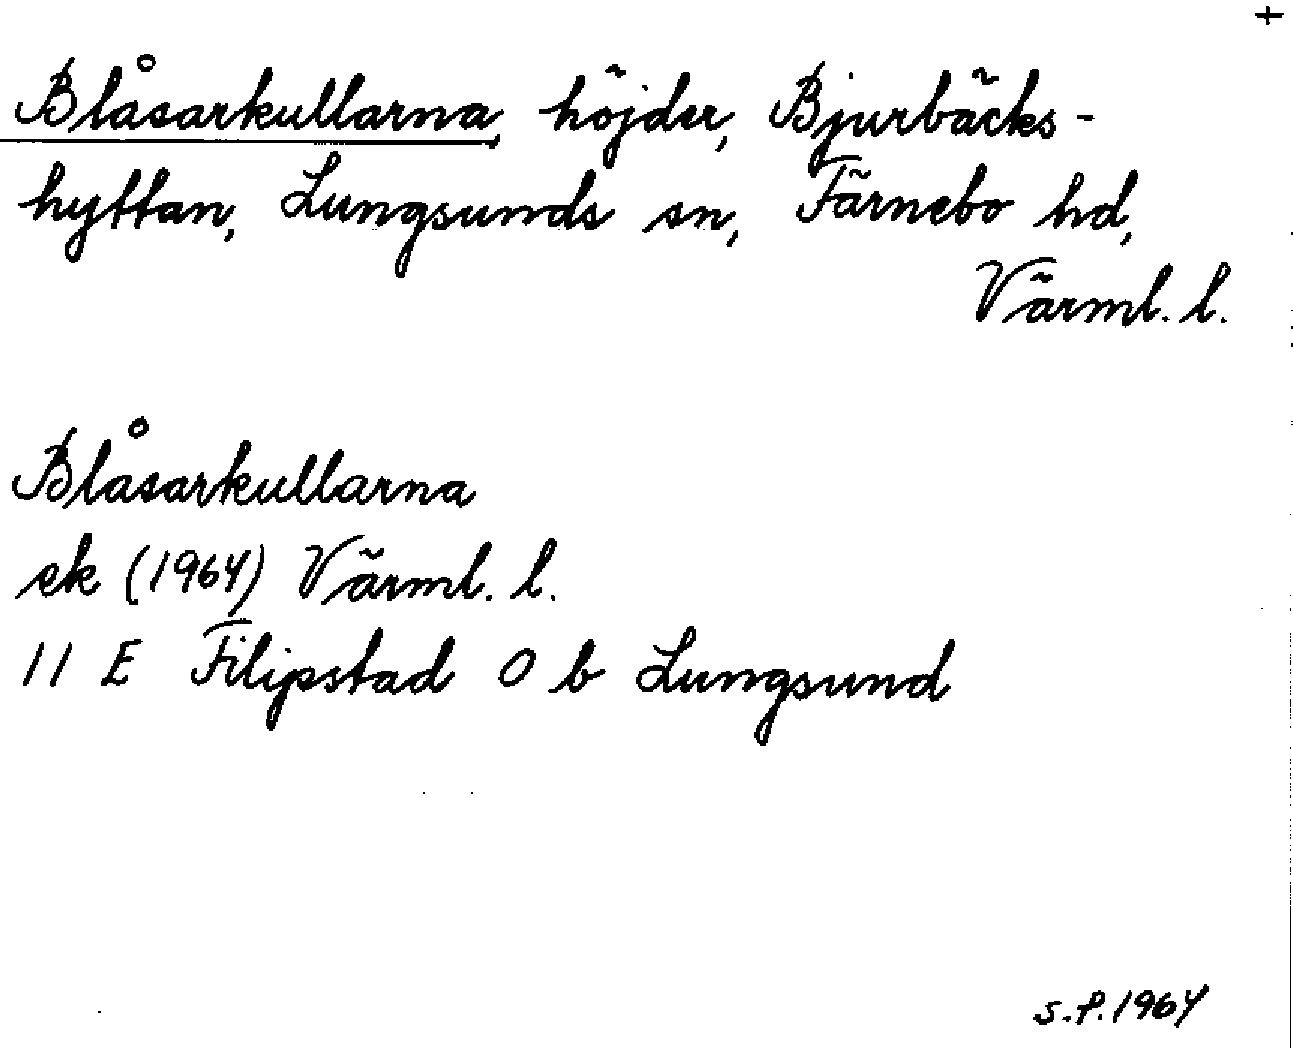 +
Blåsarkullarna, höjder, Bjurbäcks-
hyttan, Lungsunds sn, Färnebo hd,
Värml. l.
Blåsarkullarna
ek (1964) Värml. l.
11 E Filipstad 0 b Lungsund
s.f. 1964